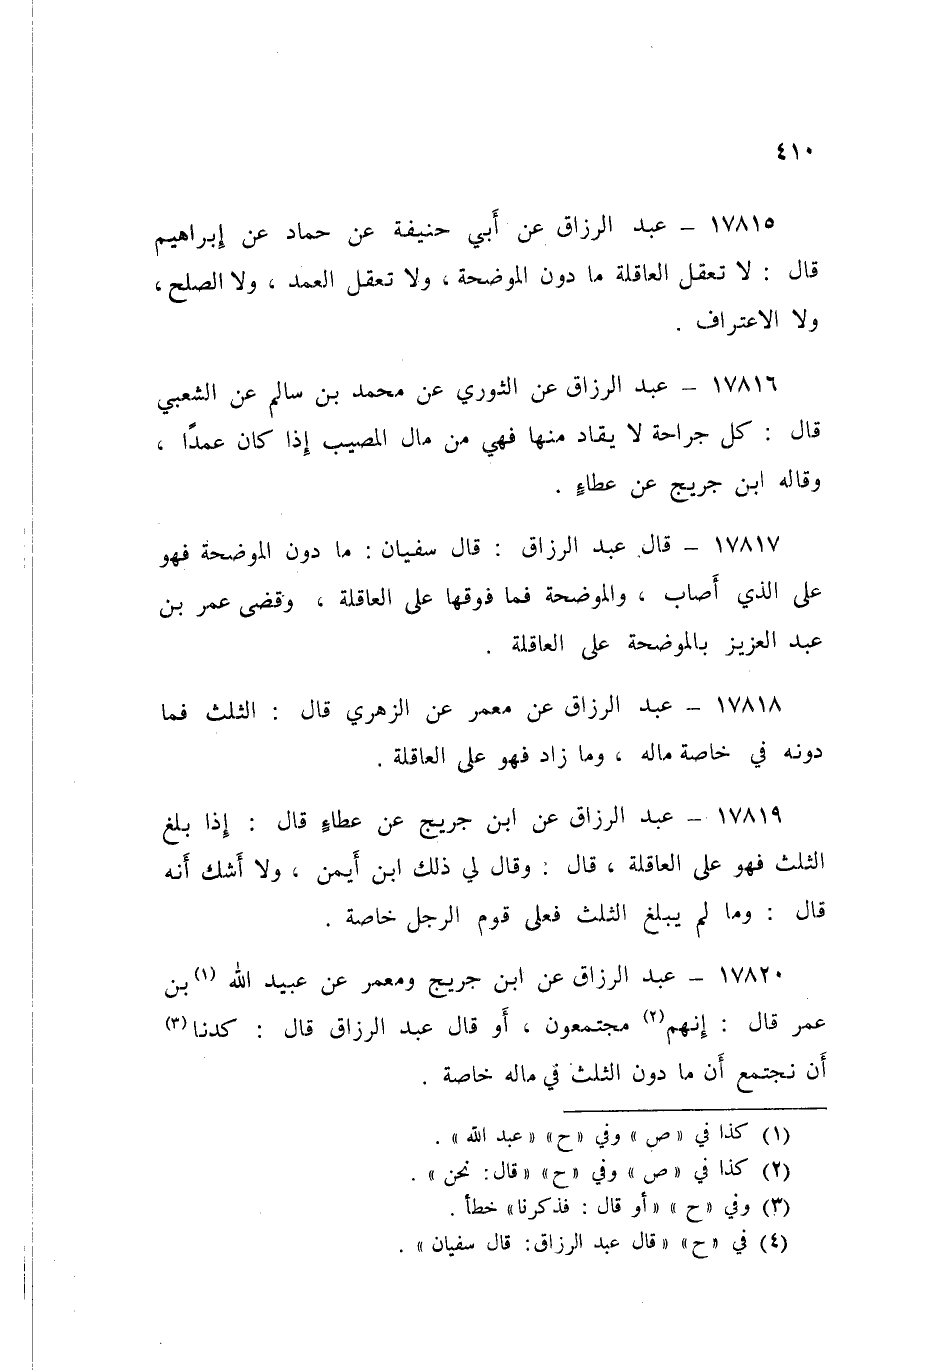 ٤١٠
١٧٨١٥ – عبد الرزاق عن أبي حنيفة عن حماد عن إبراهيم
قال : لا تعقل العاقلة ما دون الموضحة ، ولا تعقل العمد ، ولا الصلح ،
ولا الاعتراف .
١٧٨١٦ – عبد الرزاق عن الثوري عن محمد بن سالم عن الشعبي
قال : كل جراحة لا يقاد منها فهي من مال المصيب إذا كان عمدًا ،
وقاله ابن جريج عن عطاءٍ .
١٧٨١٧ – قال عبد الرزاق : قال سفيان : ما دون الموضحة فهو
على الذي أصاب ، والموضحة فما فوقها على العاقلة ، وقضى عمر بن
عبد العزيز بالموضحة على العاقلة .
١٧٨١٨ – عبد الرزاق عن معمر عن الزهري قال : الثلث فما
دونه في خاصة ماله ، وما زاد فهو على العاقلة .
١٧٨١٩ – عبد الرزاق عن ابن جريج عن عطاءٍ قال : إذا بلغ
الثلث فهو على العاقلة ، قال : وقال لي ذلك ابن أيمن ، ولا أشك أنه
قال : وما لم يبلغ الثلث فعلى قوم الرجل خاصة .
١٧٨٢٠ – عبد الرزاق عن ابن جريج ومعمر عن عبيد الله (١) بن
عمر قال : إنهم (٢) مجتمعون ، أو قال عبد الرزاق قال : كدنا (٣)
أن نجتمع أن ما دون الثلث في ماله خاصة .
(١) كذا في « ص » وفي « ح » « عبد الله » .
(٢) كذا في « ص » وفي « ح » « قال : نحن » .
(٣) وفي « ح » « أو قال : فذكرنا » خطأ .
(٤) في « ح » « قال عبد الرزاق : قال سفيان » .